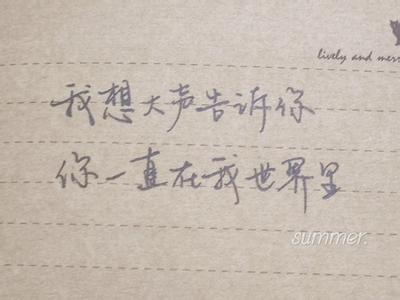 lively and merr
我想大声告诉你
你一直在我世界里
summer.